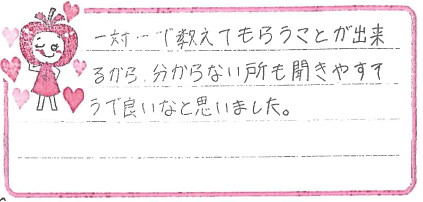 一対一で教えてもらうことが出来
るから、分からない所も聞きやすそ
うで良いなと思いました。